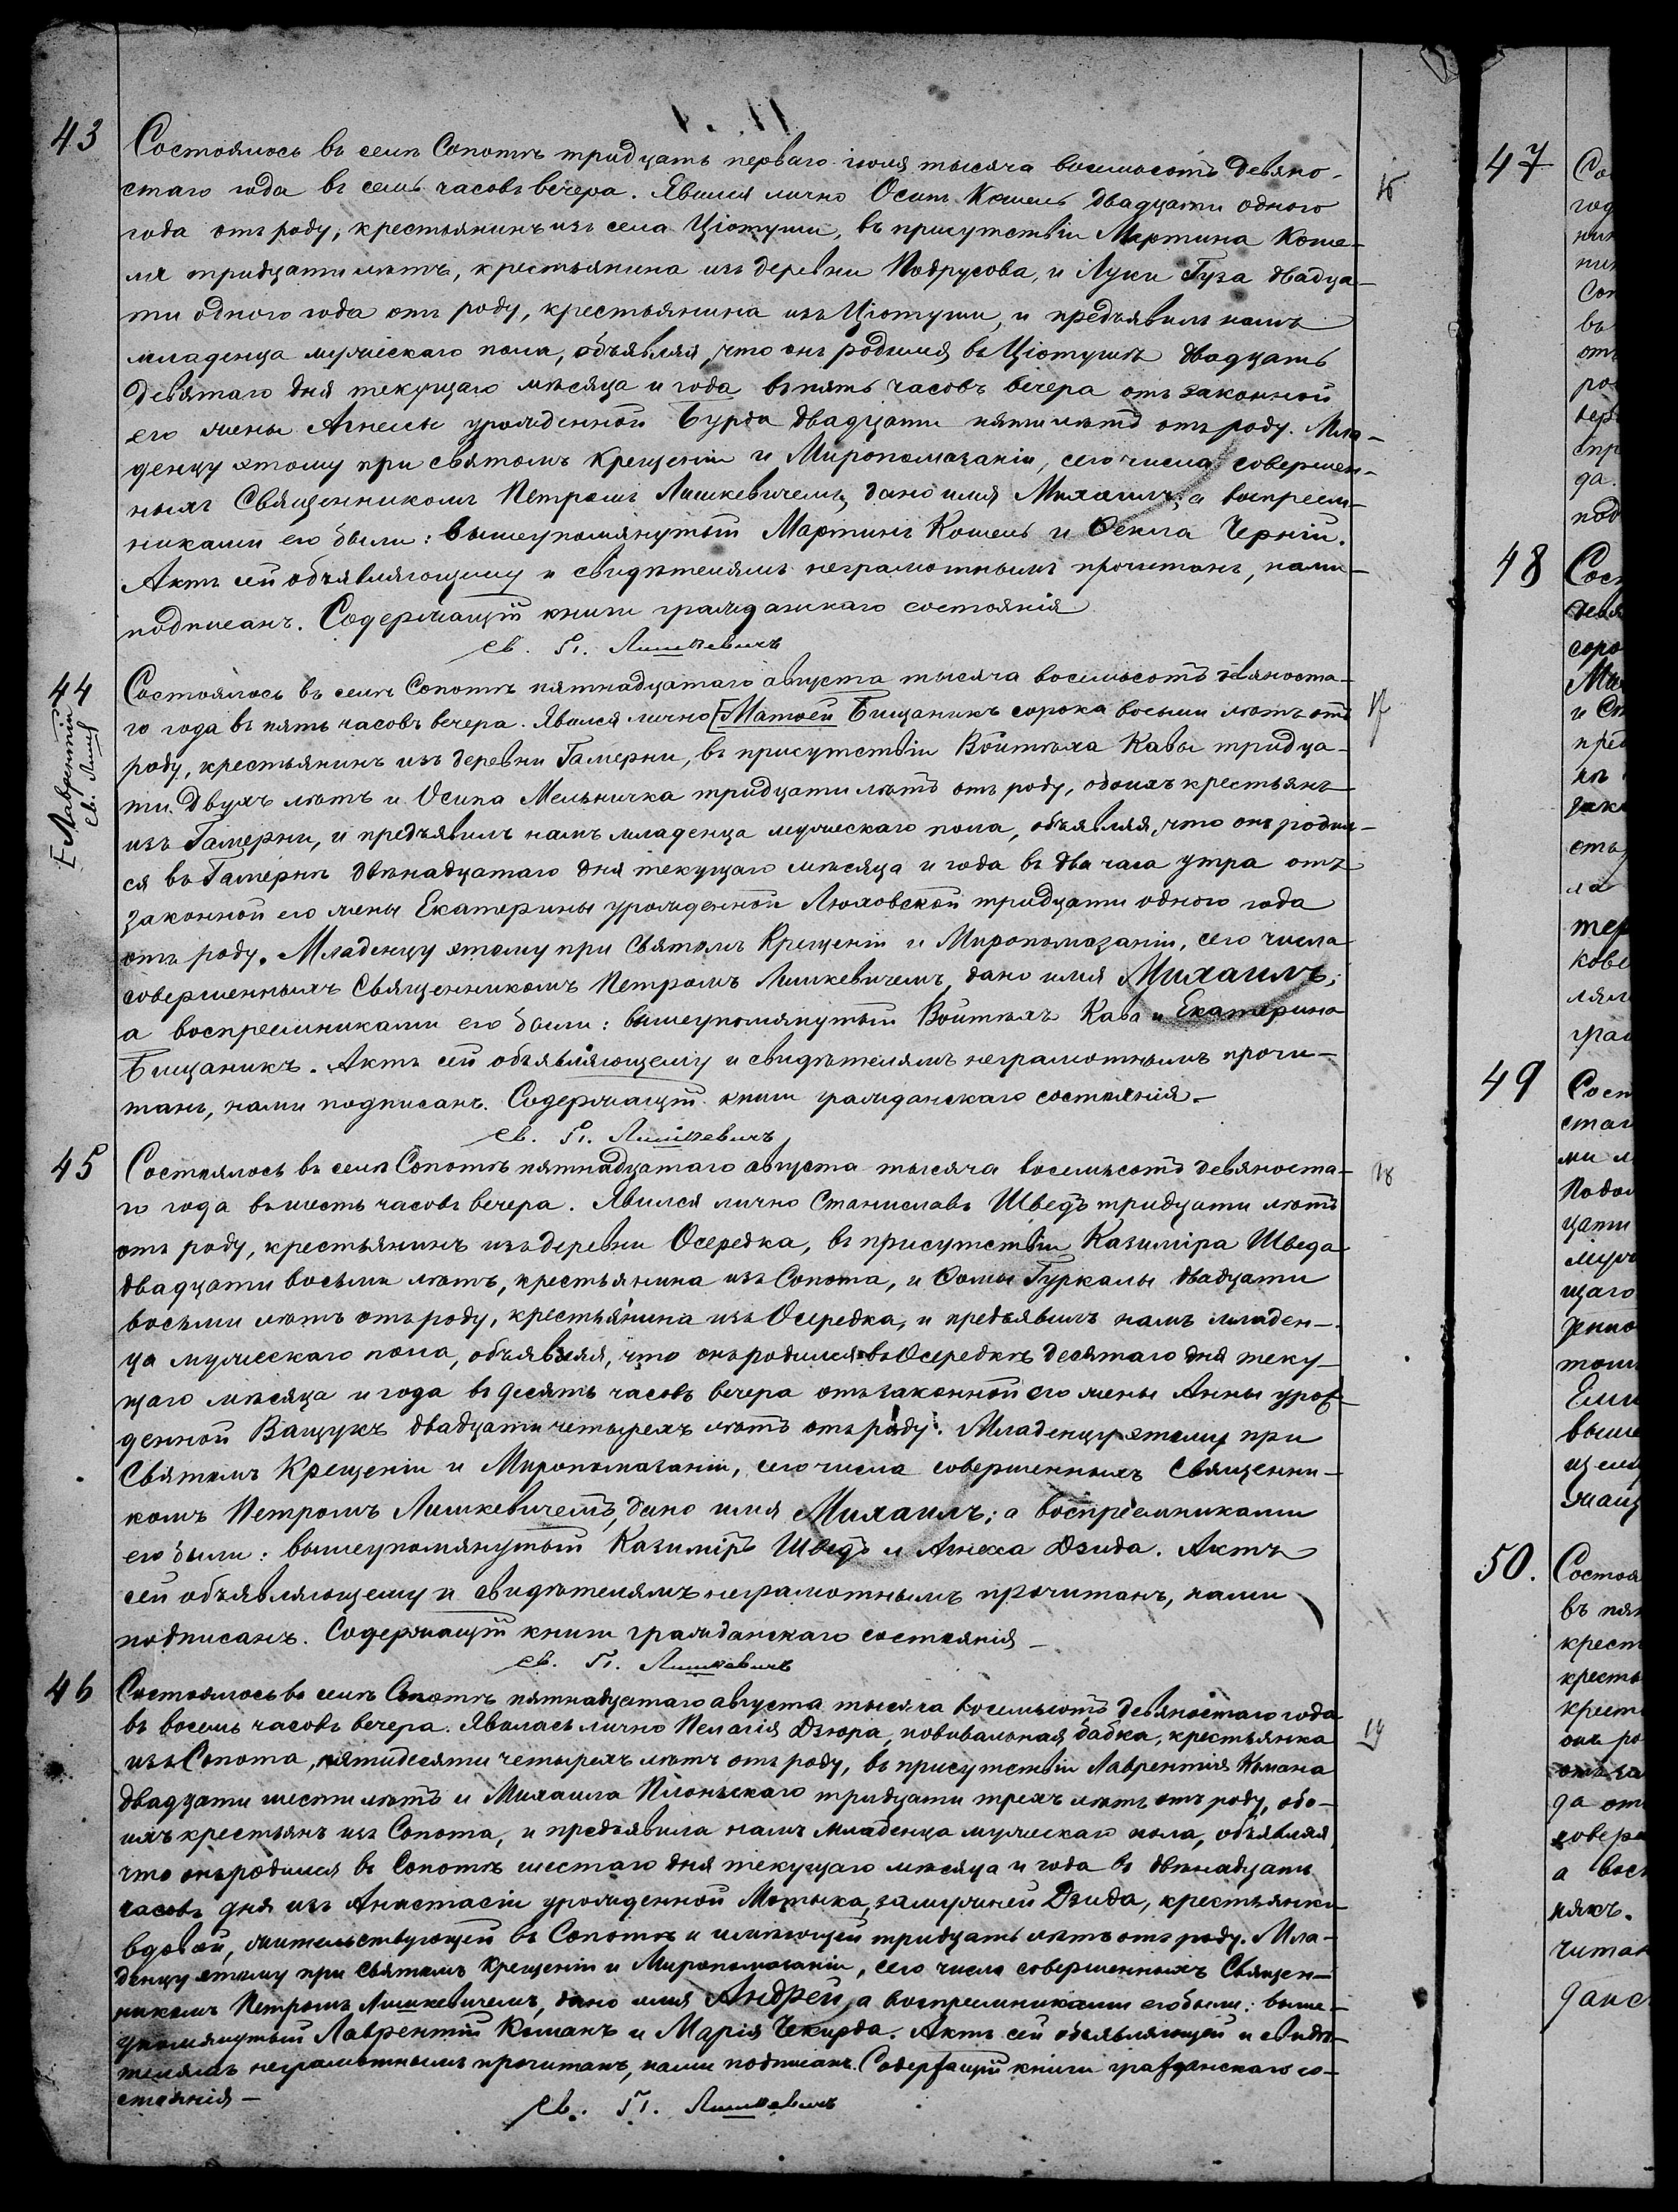 43
Состоялось въ селѣ Сопотѣ тридцать перваго іюля тысяча восемьсотъ девяно-
стаго года въ семь часовъ вечера. Явился лично Осипъ Кошель двадцати одного
года отъ роду, крестьянинъ изъ села Ціотуши, въ присутствіи Мартина Коше-
ля тридцати лѣтъ, крестьянина изъ деревни Подрусова, и Луки Гуза двадца-
ти одного года отъ роду, крестьянина изъ Ціотуши, и предъявилъ намъ
младенца мужескаго пола, объявляя, что онъ родился въ Ціотушѣ двадцать
девятаго дня текущаго мѣсяца и года въ пять часовъ вечера отъ законной
его жены Агнессы урожденной Бурда двадцати пяти лѣтъ отъ роду. Мла-
денцу этому при святомъ Крещеніи и Миропомазаніи, сего числа совершен-
ныхъ Священникомъ Петромъ Лишкевичемъ, дано имя Михаилъ; а воспреем-
никами его были: вышеупомянутый Мартинъ Кошель и Ѳекла Черній.
Актъ сей объявляющему и свидѣтелямъ неграмотнымъ прочитанъ, нами
подписанъ. Содержащій книги гражданскаго состоянія
Св. П. Лишкевичъ
44
Состоялось въ селѣ Сопотѣ пятнадцатаго августа тысяча восемьсотъ девяноста-
го года въ пять часовъ вечера. Явился лично [Матѳей Бищаникъ сорока восьми лѣтъ отъ
роду, крестьянинъ изъ деревни Гамерни, въ присутствіи Войтѣха Кавы тридца-
ти двухъ лѣтъ и Осипа Мельничка тридцати лѣтъ отъ роду, обоихъ крестьянъ
изъ Гамерни, и предъявилъ намъ младенца мужескаго пола, объявляя, что онъ родил-
ся въ Гамернѣ двѣнадцатаго дня текущаго мѣсяца и года въ два часа утра отъ
законной его жены Екатерины урожденной Люховской тридцати одного года
отъ роду. Младенцу этому при Святомъ Крещеніи и Миропомазаніи, сего числа
совершенныхъ Священникомъ Петромъ Лишкевичемъ, дано имя Михаилъ;
а воспреемниками его были: вышеупомянутый Войтѣхъ Кава и Екатерина
Бищаникъ. Актъ сей объявляющему и свидѣтелямъ неграмотнымъ прочи-
танъ, нами подписанъ. Содержащій книги гражданскаго состоянія.
Св. П. Лишкевичъ
[Лаврентій
Св. Лиш
45
Состоялось въ селѣ Сопотѣ пятнадцатаго августа тысяча восемьсотъ девяноста-
го года въ шесть часовъ вечера. Явился лично Станиславъ Шведъ тридцати лѣтъ
отъ роду, крестьянинъ изъ деревни Осередка, въ присутствіи Казиміра Шведа
двадцати восьми лѣтъ, крестьянина изъ Сопота, и Ѳомы Гуркалы двадцати
восьми лѣтъ отъ роду, крестьянина изъ Осередка, и предъявилъ намъ младен-
ца мужескаго пола, объявляя, что онъ родился въ Осередкѣ десятаго дня теку-
щаго мѣсяца и года въ десять часовъ вечера отъ законной его жены Анны урож-
денной Ващукъ двадцати четырехъ лѣтъ отъ роду. Младенцу этому при
Святомъ Крещеніи и Миропомазаніи, сего числа совершенныхъ Священни-
комъ Петромъ Лишкевичемъ, дано имя Михаилъ; а воспреемниками
его были: вышеупомянутый Казиміръ Шведъ и Агнеса Дзида. Актъ
сей объявляющему и свидѣтелямъ неграмотнымъ прочитанъ, нами
подписанъ. Содержащій книги гражданскаго состоянія
Св. П. Лишкевичъ
46
Состоялось въ селѣ Сопотѣ пятнадцатаго августа тысяча восемьсотъ девяностаго года
въ восемь часовъ вечера. Явилась лично Пелагія Дзюра, повивальная бабка, крестьянка
изъ Сопота, пятидесяти четырехъ лѣтъ отъ роду, въ присутствіи Лаврентія Кмана
двадцати шести лѣтъ и Михаила трехъ лѣтъ отъ роду, обо-
ихъ крестьянъ изъ Сопота, и предъявила намъ младенца мужескаго пола, объявляя,
что онъ родился въ Сопотѣ шестаго дня текущаго мѣсяца и года въ двѣнадцать
часовъ дня изъ Анастасіи урожденной Мотыка, замужней Дзида, крестьянки
вдовой, жительствующей въ Сопотѣ и имѣющей тридцать лѣтъ отъ роду. Мла-
денцу этому при Святомъ Крещеніи и Миропомазаніи, сего числа совершенныхъ Священ-
никомъ Петромъ Лишкевичемъ, дано имя Андрей, а воспреемниками его были: выше-
упомянутый Лаврентій Команъ и Марія Чекирда. Актъ сей объявляющей и свидѣ-
телямъ неграмотнымъ прочитанъ, нами подписанъ. Содержащій книги гражданскаго со-
стоянія
Св. П. Лишкевичъ
47
48
49
50.